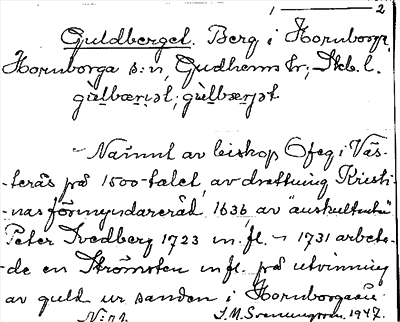 1 ——— 2
Guldberget. Berg i Hornborga,
Hornborga s:n, Gudhems hr, Skb. l.
gùlbærjət; gùlbærjət
– Nämnt av biskop Ofeg i Väs-
terås på 1500-talet, av drottning Kristi-
nas förmyndareråd 1636, av "auskultanten"
Peter Svedberg 1723 m. fl. – 1731 arbeta-
de en Strömsten m fl. på utvinning
av guld ur sanden i Hornborgaån.
J. M. Svennungsson. 1947.